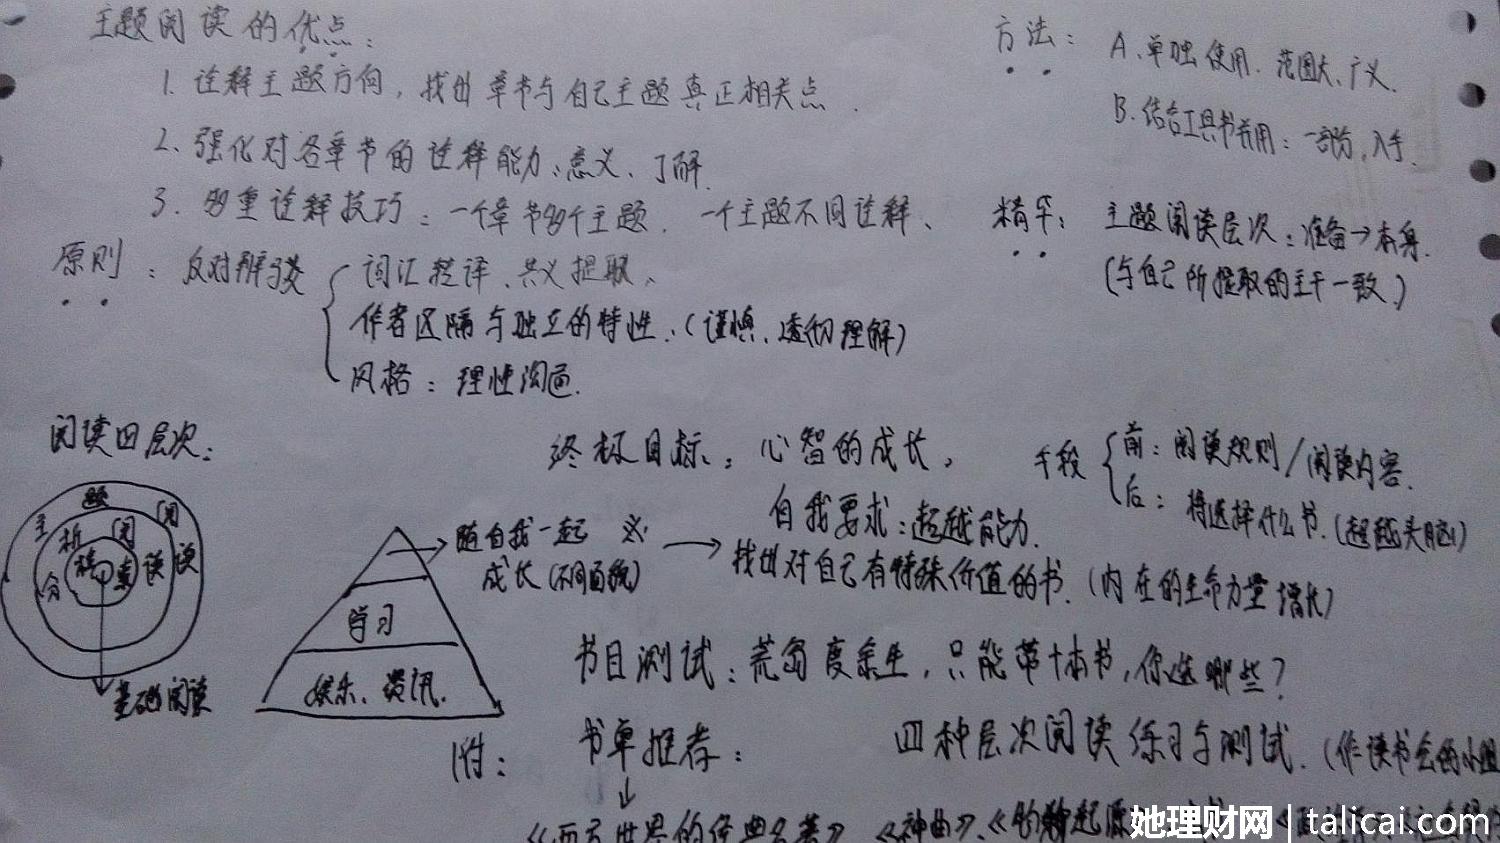 主题阅读的优点：
1. 诠释主题方向，找出章节与自己主题真正相关点．
2. 强化对各章节的诠释能力、意义、了解．
3. 多重诠释技巧：一个章节多个主题．一个主题不同诠释、
方法：A、单独使用．范围大、广义．
B. 结合工具书并用：一部分，入手．
精华：主题阅读层次：准备→本身．
(与自己所提取的主干一致．)
原则：反对辩驳
词汇转译、共义提取、
作者区隔与独立的特性．(谨慎、透彻理解)
风格：理性沟通．
阅读四层次：
主题阅读
分析阅读
检索
基础阅读
随自我一起
成长(不同面貌)
学习
娱乐、资讯．
终极目标：心智的成长，
自我要求：超越能力．
找出对自己有特殊价值的书．(内在的生命力量增长)
手段
前：阅读规则/阅读内容．
后：将选择什么书．(超越头脑)
书目测试：荒岛度余生，只能带十本书，你选哪些？
附：书单推荐：
四种层次阅读练习与测试．(作读书会的小组
《西方世界的经典名著》《神曲》、《物种起源
她理财网|talicai.com